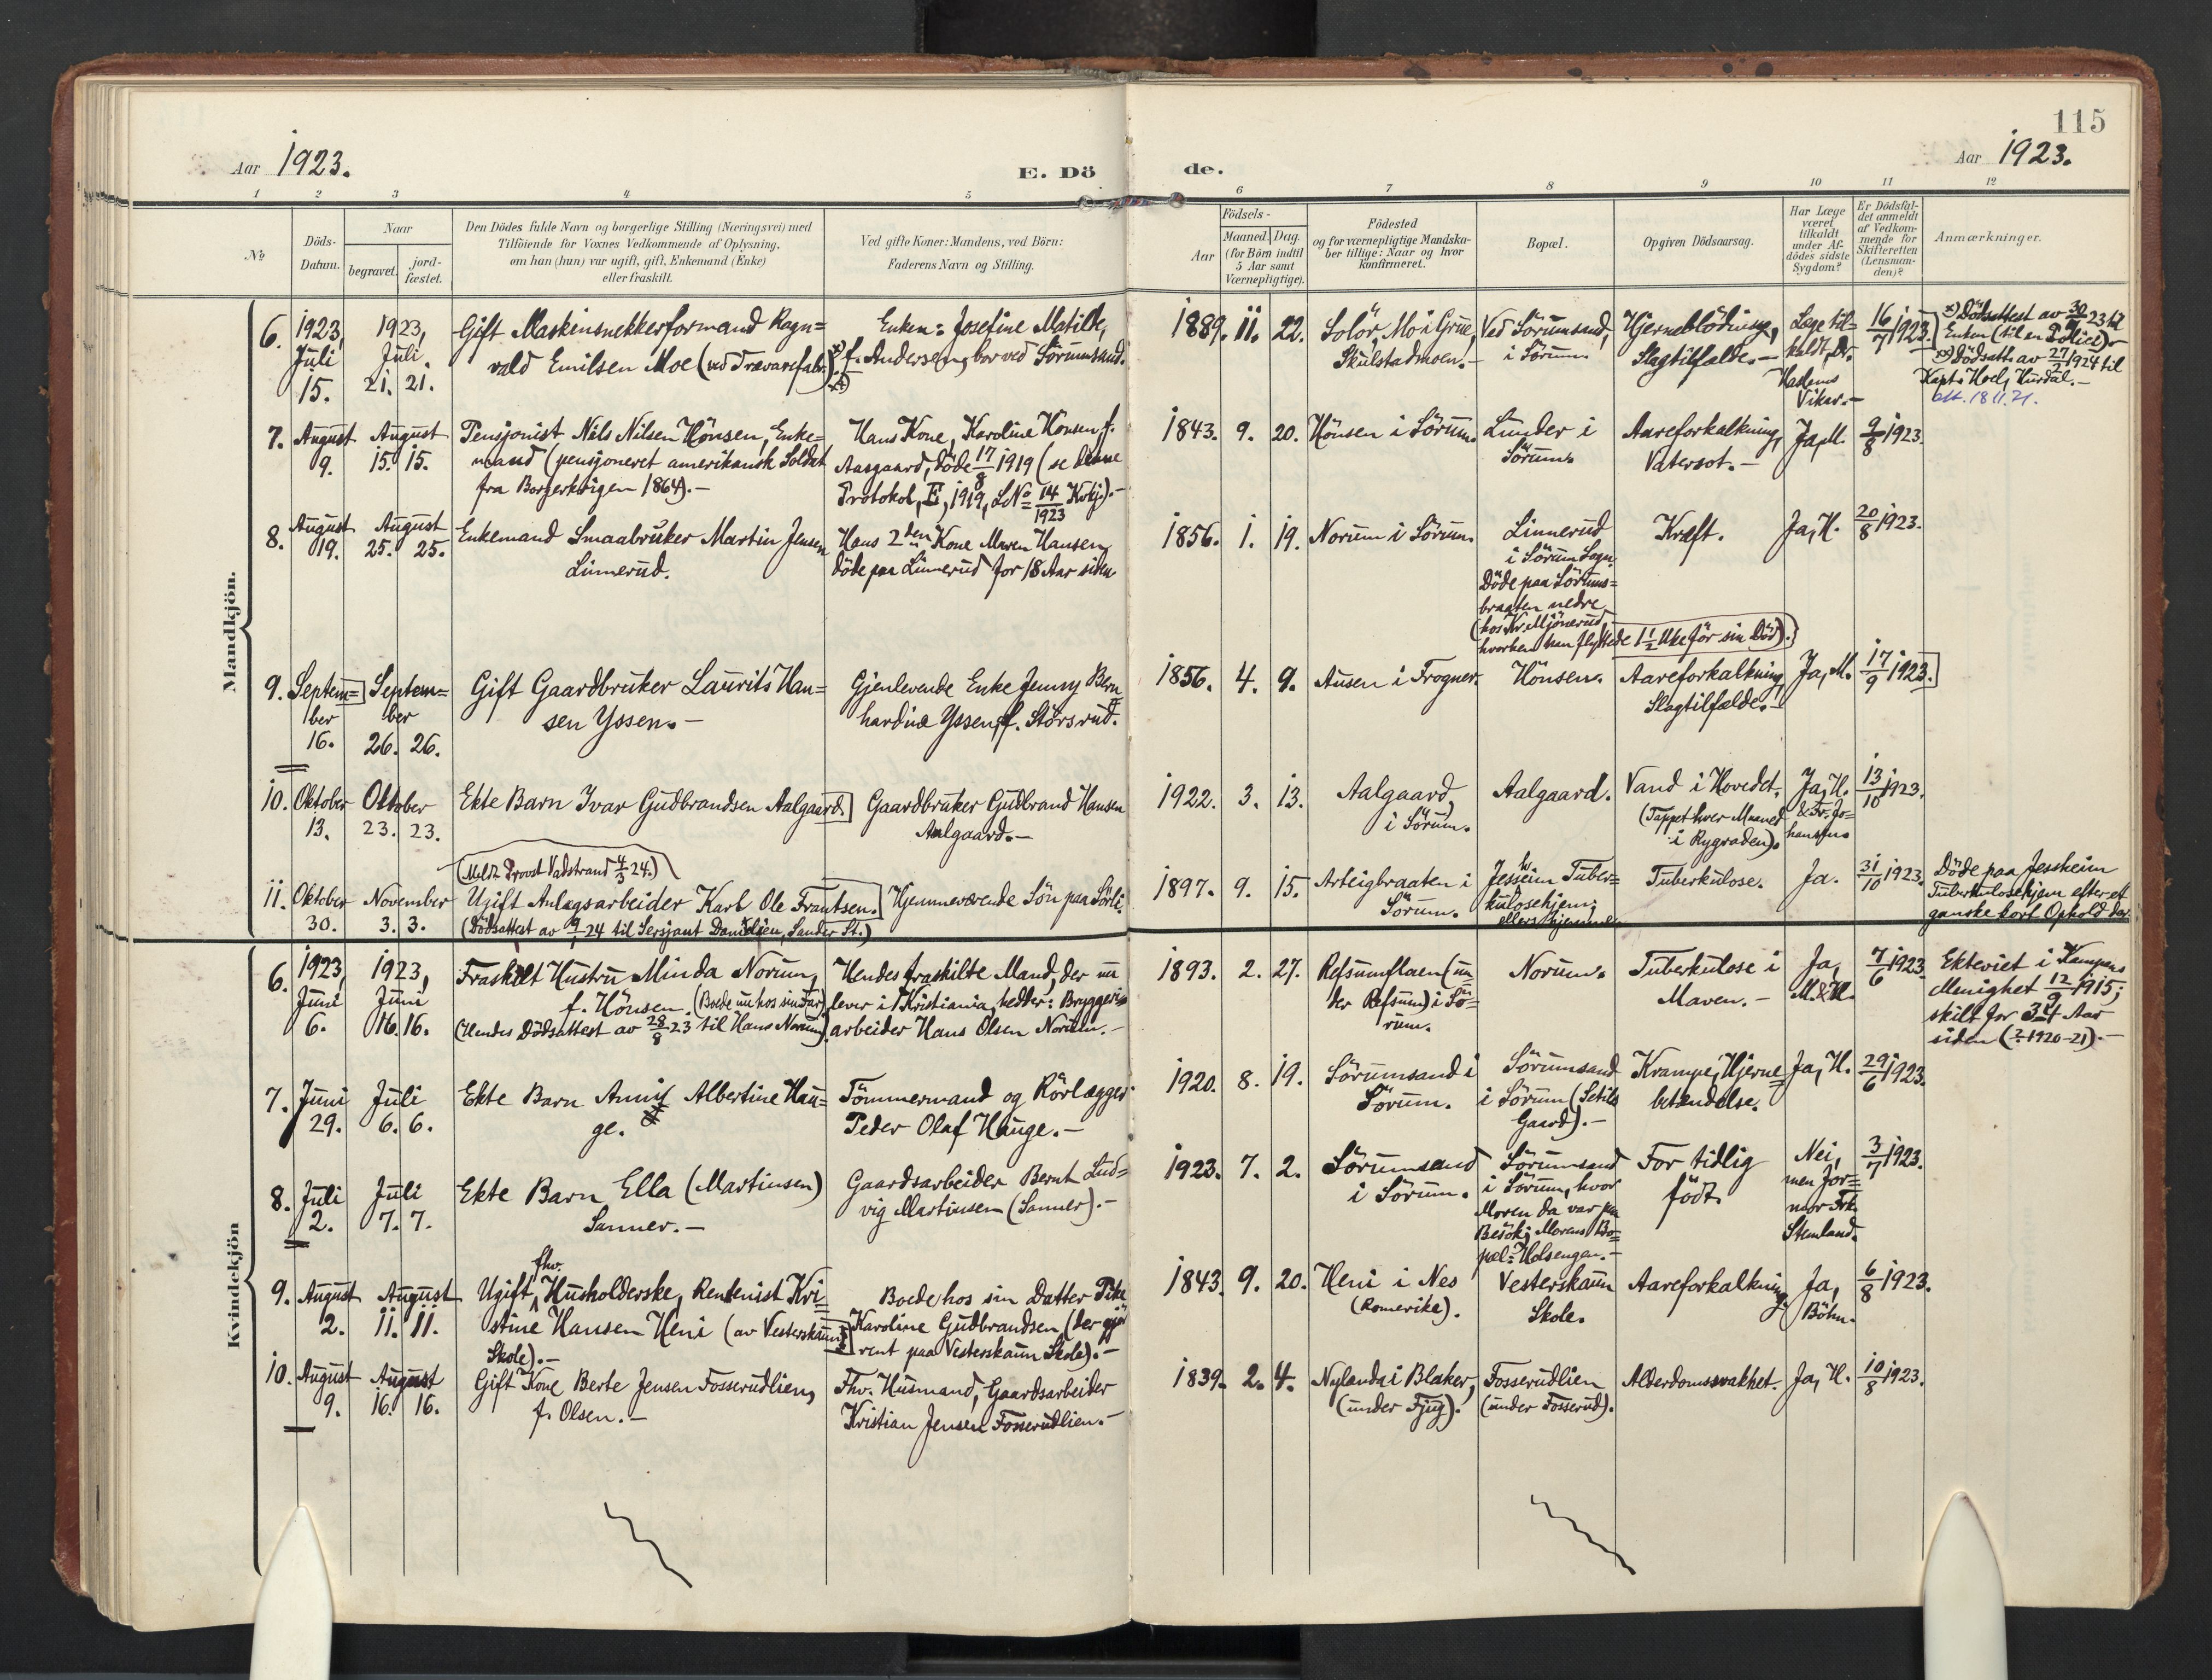 115
Aar 1923.
E. Dö
de.
Aar 1923.
1 2 3 4 5 6 7 8 9 10 11 12
No
Döds-
Datum.
Naar
begravet.
jord-
fæstet.
Den Dödes fulde Navn og borgerlige Stilling (Næringsvei) med
Tilföiende for Voxnes Vedkommende af Oplysning,
om han (hun) var ugift, gift, Enkemand (Enke)
eller fraskilt.
Ved gifte Koner: Mandens, ved Börn:
Faderens Navn og Stilling.
Födsels-
Aar
Maaned. Dag.
(for Börn indtil
5 Aar samt
Værnepligtige).
Födested
og for værnepligtige Mandska-
ber tillige: Naar og hvor
konfirmeret.
Bopæl.
Opgiven Dödsaarsag.
Har Læge
været
tilkaldt
under Af-
dödes sidste
Sygdom?
Er Dödsfal-
det anmeldt
af Vedkom-
mende for
Skifteretten
(Lensman-
den)?
Anmærkninger.
Mandkjön.
6.
1923,
Juli
15.
1923,
Juli
21. 21.
Gift Maskinsnekkerformand Ragn=
vald Emilsen Moe (ved Trævarefabr.).
Enken: Josefine Matilde,
f. Andersen, bor ved Sörumsand.
1889. 11. 22.
Solör, Mo i Grue,
Skulstadmoen.-
Ved Sörumsand,
i Sörum.
Hjerneblödning,
Slagtilfælde.-
Læge til=
kaldt, Dr.
Hadems
Vikar.-
16/7 1923.
x) Dödsattest av 30/7 23 til
Enken (til en Police).-
xx) Dödsatt. av 27/2 1924 til
Kapt. Hoel, Hurdal.-
7.
August
9.
August
15. 15.
Pensjonist Nils Nilsen Hönsen, Enke=
mand (pensjoneret amerikansk Soldat
fra Borgerkrigen 1864).-
Hans Kone, Karoline Hönsen f.
Aasgaard, döde 17/8 1919 (se denne
Protokol, E, 1919, LNo 14 Kvkj.).-
1923
1843. 9. 20.
Hönsen i Sörum.
Lunder i
Sörum.
Aareforkalkning,
Vatersot.-
Ja, M.
9/8 1923.
8.
August
19.
August
25. 25.
Enkemand Smaabruker Martin Jensen
Linnerud.
Hans 2den Kone Maren Hansen,
döde paa Linnerud for 18 Aar siden
1856. 1. 19.
Norum i Sörum.
Linnerud
i Sörum Sogn.
Döde paa Sörums=
braaten nedre
(hos Kr. Mjönerud,
hvorhen han flyttede 1 1/2 Uke för sin Död).
Kræft.
Ja, H.
20/8 1923.
9.
Septem=
ber
16.
Septem=
ber
26. 26.
Gift Gaardbruker Laurits Han=
sen Yssen.-
Gjenlevende Enke Jenny Bern
hardine Yssen, f. Störsrud.
1856. 4. 9.
Ausen i Frogner.
Hönsen.
Aareforkalkning,
Slagtilfælde.-
Ja, M.
17/9 1923.
10.
Oktober
13.
Oktober
23. 23.
Ekte Barn Ivar Gudbrandsen Aalgaard.
Gaardbruker Gudbrand Hansen
Aalgaard.-
1922. 3. 13.
Aalgaard,
i Sörum.
Aalgaard.
Vand i Hovedet.
(Tappet hver Maaned
i Rygraden).
Ja, H.
& Fr. Jo=
hansen.
13/10 1923.
(Meldt Provst Vadstrand 4/3 24.)
11.
Oktober
30.
November
3. 3.
Ugift Anlægsarbeider Karl Ole Frantsen.
(Dödsattest av 9/1 24 til Sersjant Danielsen, Sander St.)
Hjemmeværende Sön paa Sörli.
1897. 9. 15.
Arteigbraaten i
Sörum.
Jessheim Tuber=
kulosehjem;
ellers hjemme.
Tuberkulose.
Ja.
31/10 1923.
Döde paa Jessheim
Tuberkulosehjem efter et
ganske kort Ophold der.
Kvindekjön
6.
1923,
Juni
6.
1923,
Juni
16. 16.
Fraskilt Hustru Minda Norum,
f. Hönsen. (Boede nu hos sin Far).
(Hendes Dödsattest av 28/8 23 til Hans Norum).
Hendes fraskilte Mand, der nu
lever i Kristiania, hedder: Bryggeri=
arbeider Hans Olsen Norum.-
1893. 2. 27.
Refsumflaen (un
der Refsum) i Sö=
rum.
Norum.
Tuberkulose i
Maven.-
Ja,
M. & H.
7/6 1923.
Ekteviet i Kampens
Menighet 12/9 1915;
skilt for 3-4 Aar
siden (?: 1920-21).-
7.
Juni
29.
Juli
6. 6.
Ekte Barn Annie Albertine Hau=
ge.
Tömmermand og Rörlægger
Peder Olaf Hauge.-
1920. 8. 19.
Sörumsand i
Sörum.
Sörumsand
i Sörum (Sätils
Gaard).-
Krampe, Hjerne=
betændelse.
Ja, H.
29/6 1923.
8.
Juli
2.
Juli
7. 7.
Ekte Barn Ella (Martinsen)
Sanner.-
Gaardsarbeider Bernt Lud=
vig Martinsen (Sanner).-
1923. 7. 2.
Sörumsand
i Sörum.
Sörumsand
i Sörum, hvor
Moren da var paa
Besök; Morens Bo=
pæl: Holsengen.-
For tidlig
födt.
Nei,
men Jor=
mor Frk.
Stenland.
3/7 1923.
9.
August
2.
August
11. 11.
Ugift, fhv. Husholderske, Rentenist Kri=
stine Hansen Heni (av Vesterskaun
Skole).-
Boede hos sin Datter Pike
Karoline Gudbrandsen (der gjör
rent paa Vesterskaun Skole).-
1843. 9. 20.
Heni i Nes
(Romerike).
Vesterskaun
Skole.
Aareforkalkning.
Ja,
Böhn.
6/8 1923.
10.
August
9.
August
16. 16.
Gift Kone Berte Jensen Fosserudlien,
f. Olsen.-
Fhv. Husmand, Gaardsarbeider
Kristian Jensen Fosserudlien.-
1839. 2. 4.
Nylanda i Blaker,
(under Fjug).
Fosserudlien
(under Fosserud).
Alderdomssvakhet.
Ja, H.
10/8 1923.